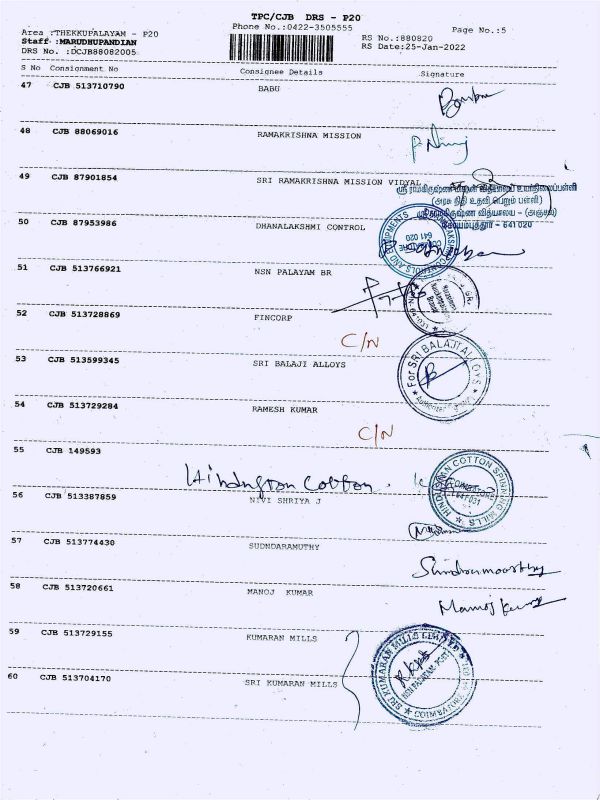 TPC/CJB DRS - P20
Phone No.:0422-3505555
Page No.:5
Area :THEKKUPALAYAM - P20
RS No.:880820
Staff :MARUDHUPANDIAN
RS Date:25-Jan-2022
DRS No. :DCJB88082005
S No Consignment No Consignee Details Signature
47 CJB 513710790 BABU
48 CJB 88069016 RAMAKRISHNA MISSION
49 CJB 87901854 SRI RAMAKRISHNA MISSION VIDYAL
ஸ்ரீ ராமகிருஷ்ண மிஷன் வித்யாலய உயர்நிலைப்பள்ளி
(அரசு நிதி உதவி பெறும் பள்ளி)
ஸ்ரீ ராமகிருஷ்ண வித்யாலய - (அஞ்சல்)
கோயம்புத்தூர் - 641 020
50 CJB 87953986 DHANALAKSHMI CONTROL
641 020
51 CJB 513766921 NSN PALAYAM BR
52 CJB 513728869 FINCORP
C/N
53 CJB 513599345 SRI BALAJI ALLOYS
For SRI BALAJI ALLOYS
54 CJB 513729284 RAMESH KUMAR
C/N
55 CJB 149593
Hindustan Cotton.
HINDUSTAN COTTON SPINNING MILLS
56 CJB 513387859 NIVI SHRIYA J
57 CJB 513774430 SUDNDARAMUTHY
58 CJB 513720661 MANOJ KUMAR
Manoj Kumar
59 CJB 513729155 KUMARAN MILLS
SRI KUMARAN MILLS LIMITED
COIMBATORE
60 CJB 513704170 SRI KUMARAN MILLS